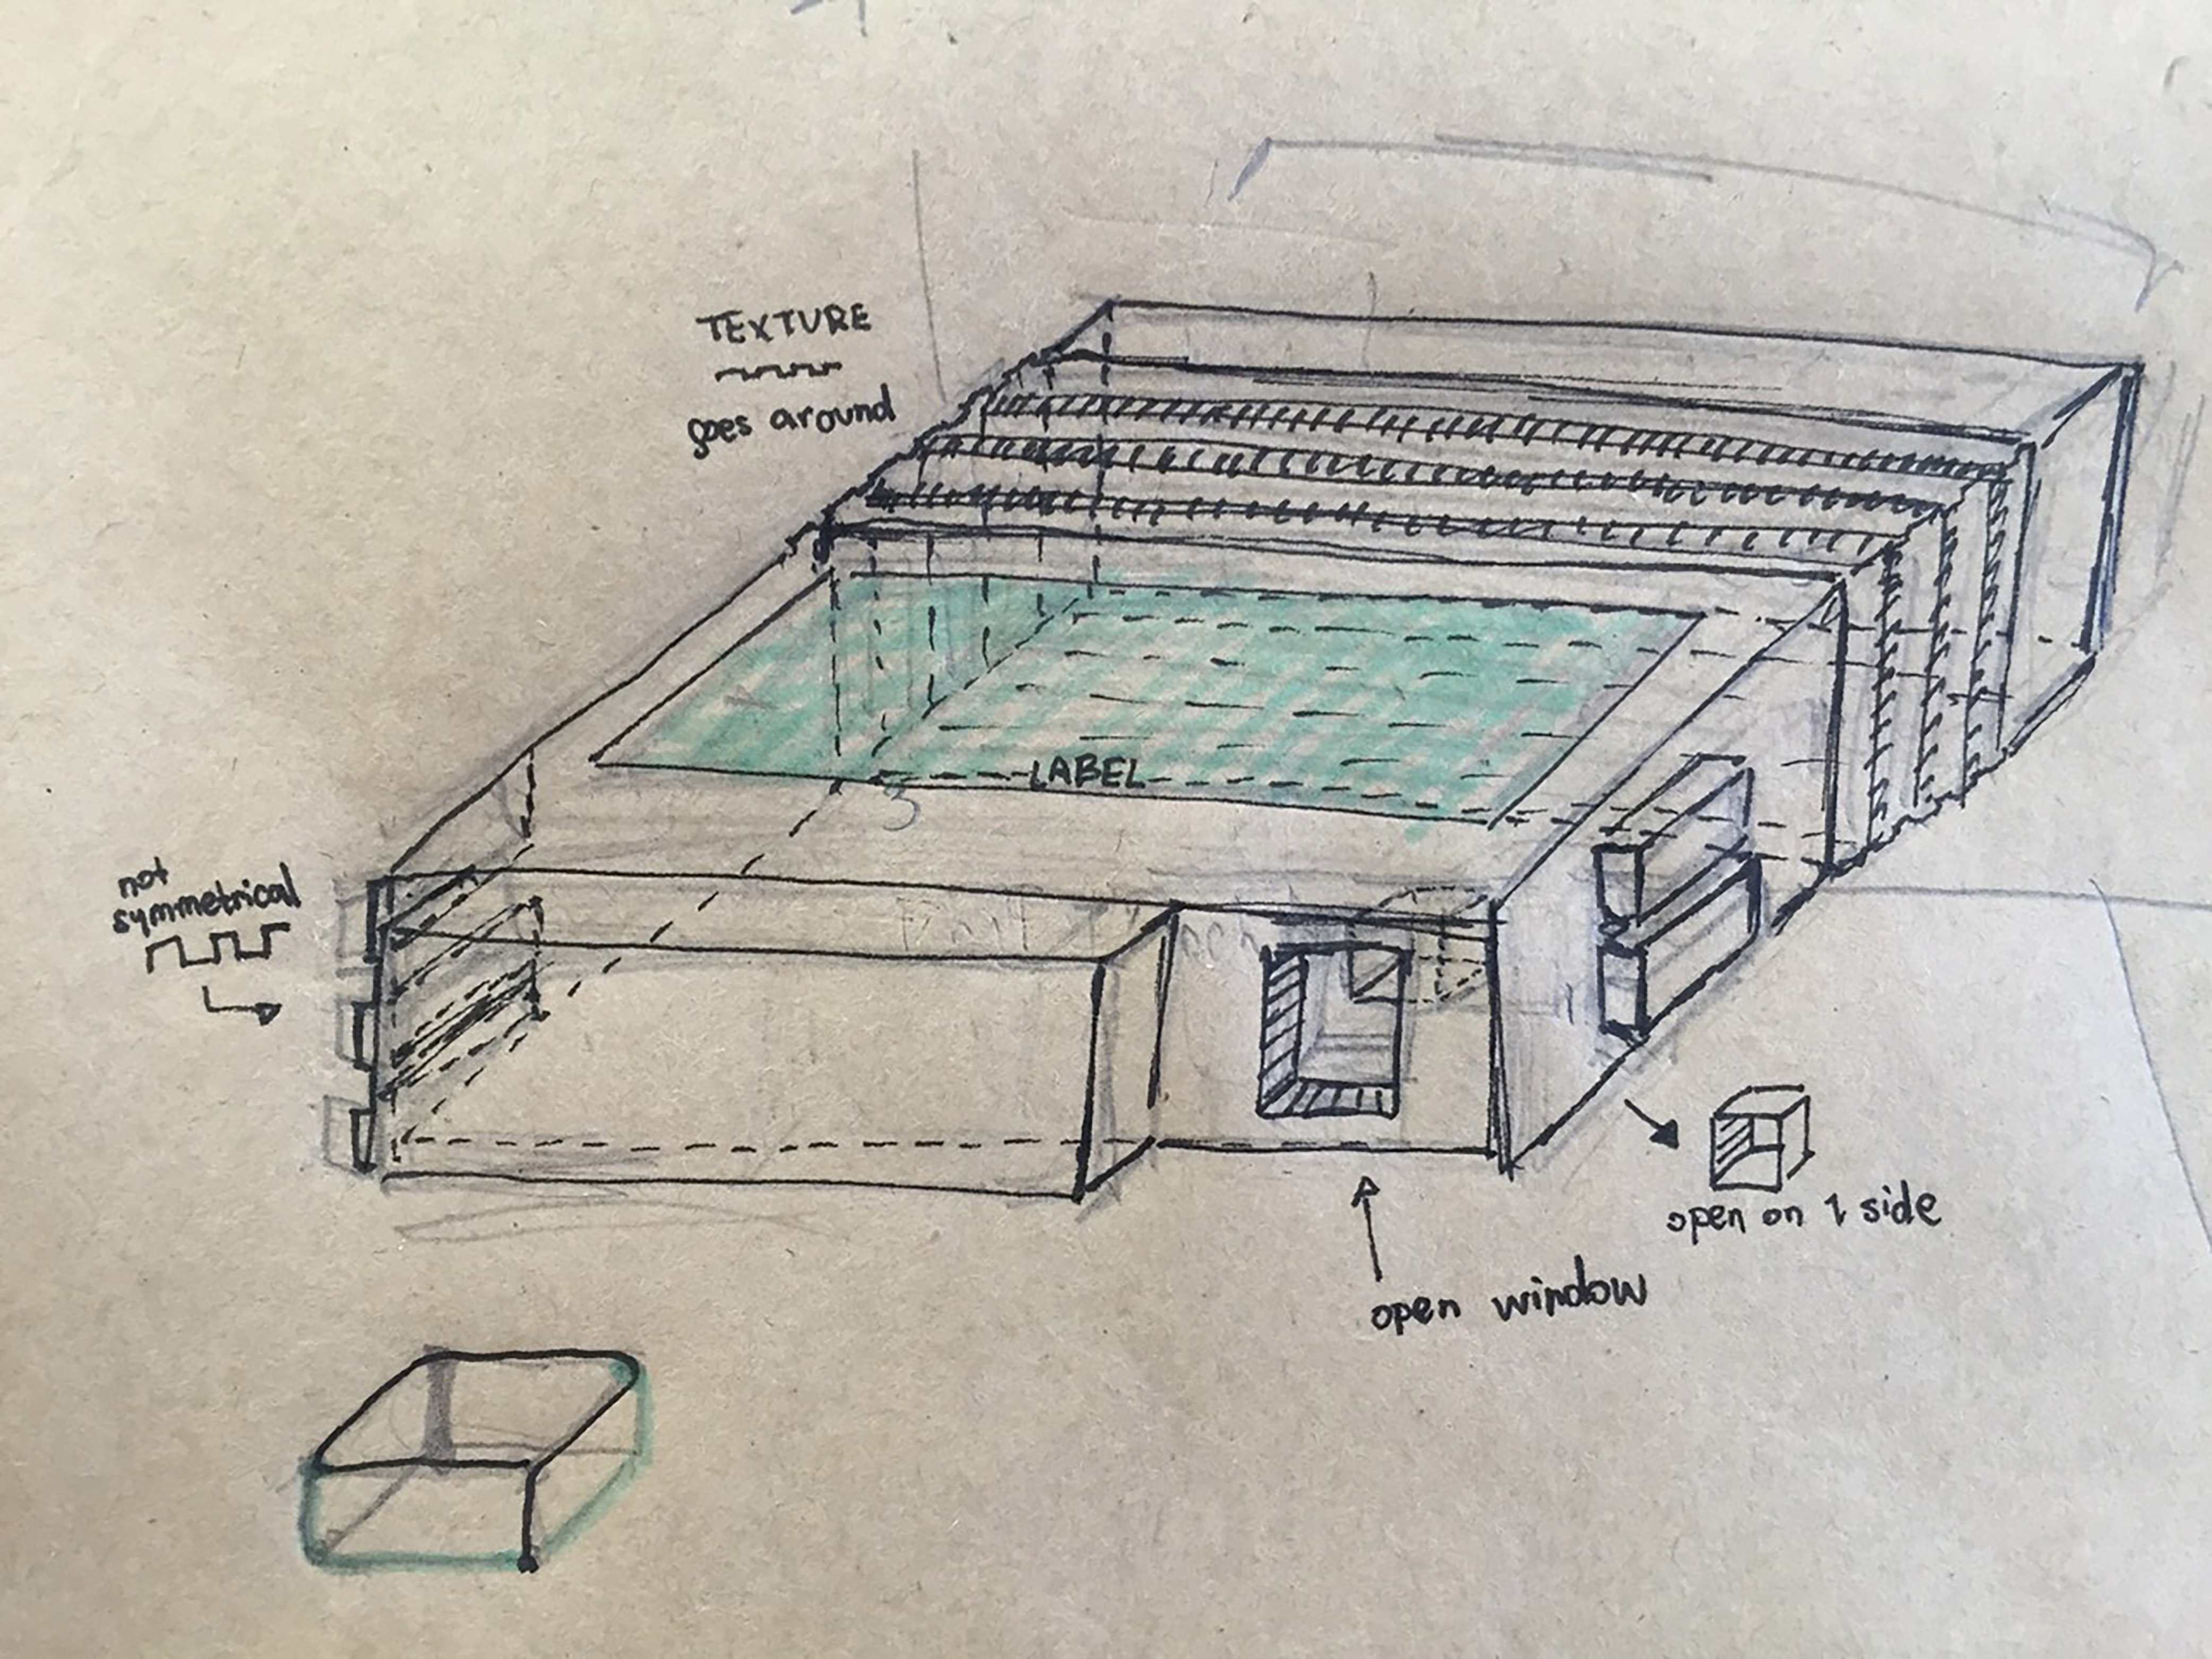 TEXTURE
goes around
LABEL
not
symmetrical
open on 1 side
open window